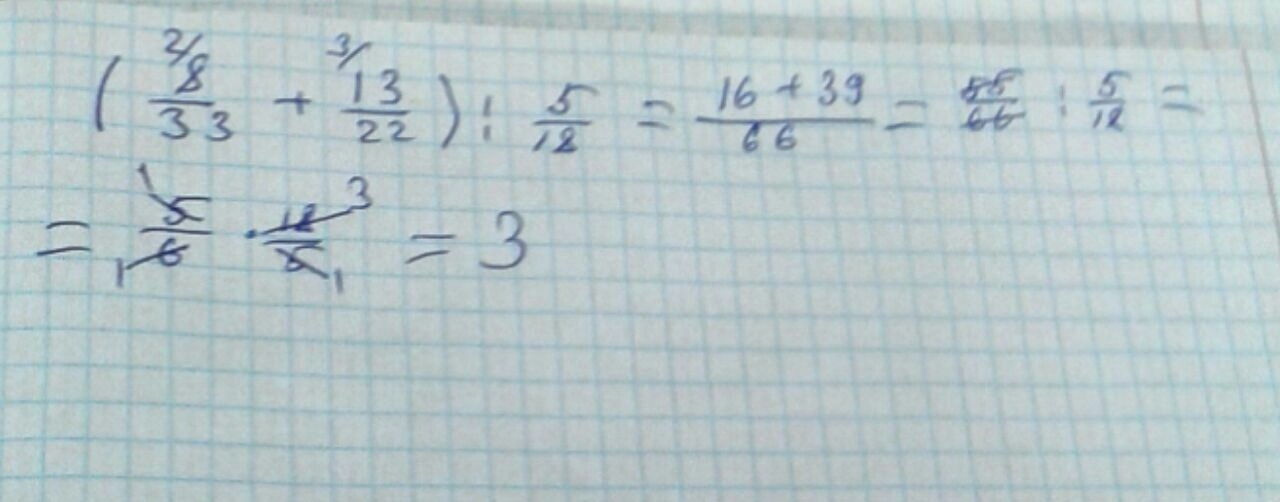 (2/ 8/33 + 3/ 13/22) : 5/12 = 16 + 39/66 = 55/66 : 5/12 =
= 1 5/6 1 · 12/5 3 1 = 3